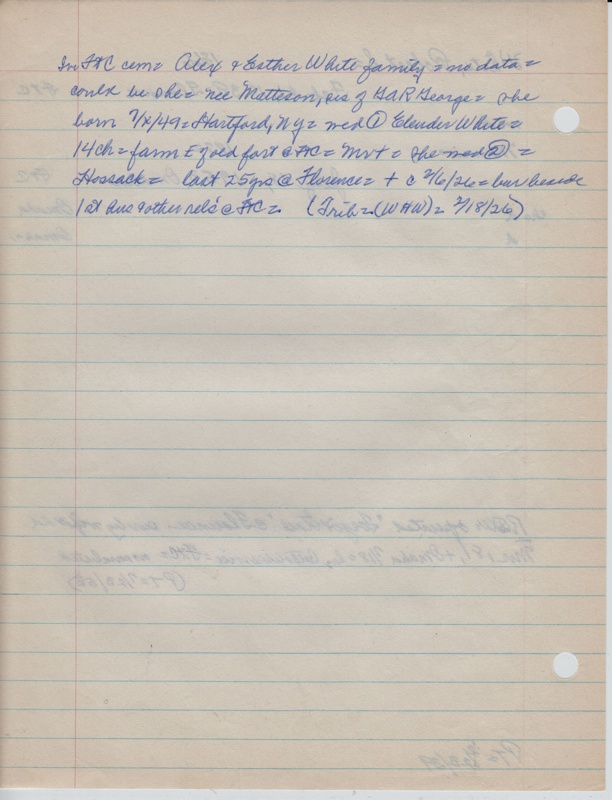 In FtC cem = Alex + Esther White family = no data =
could be she = nee Matteson, sis of GAR George = she
born 7/x/49 = Hartford, NY = med ① White =
14ch = farm E of old fort @ FtC = mvt = she med ② =
Hossack = last 25 yrs @ Florence = + c 2/6/26 = bur beside
1st hus + other rels @ FtC = (Trib = (WHW) = 2/18/26)